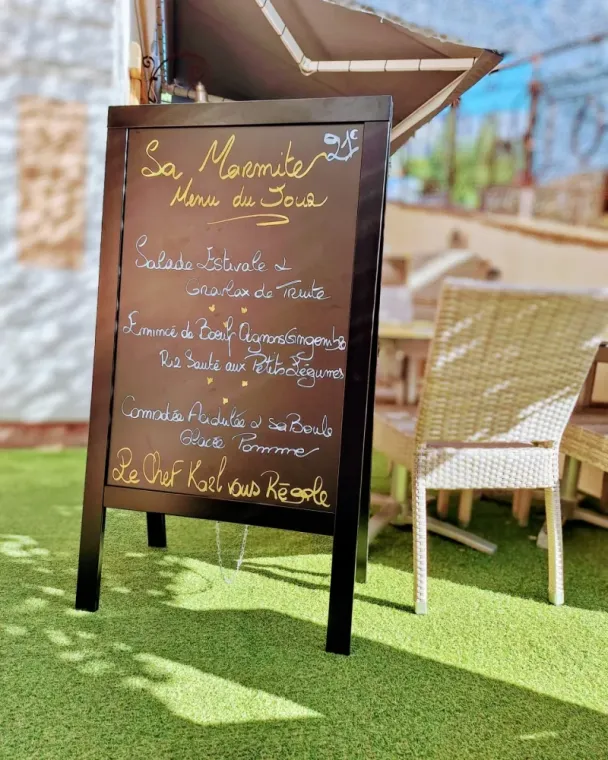 Sa Marmite 21€
Menu du Jour
Salade Estivale &
Gravlax de Truite
Émincé de Bœuf Oignons Gingembre
Riz Sauté aux Petits Légumes
Acidulée & sa Boule
Glacée Pomme
Le Chef Karl vous Régale